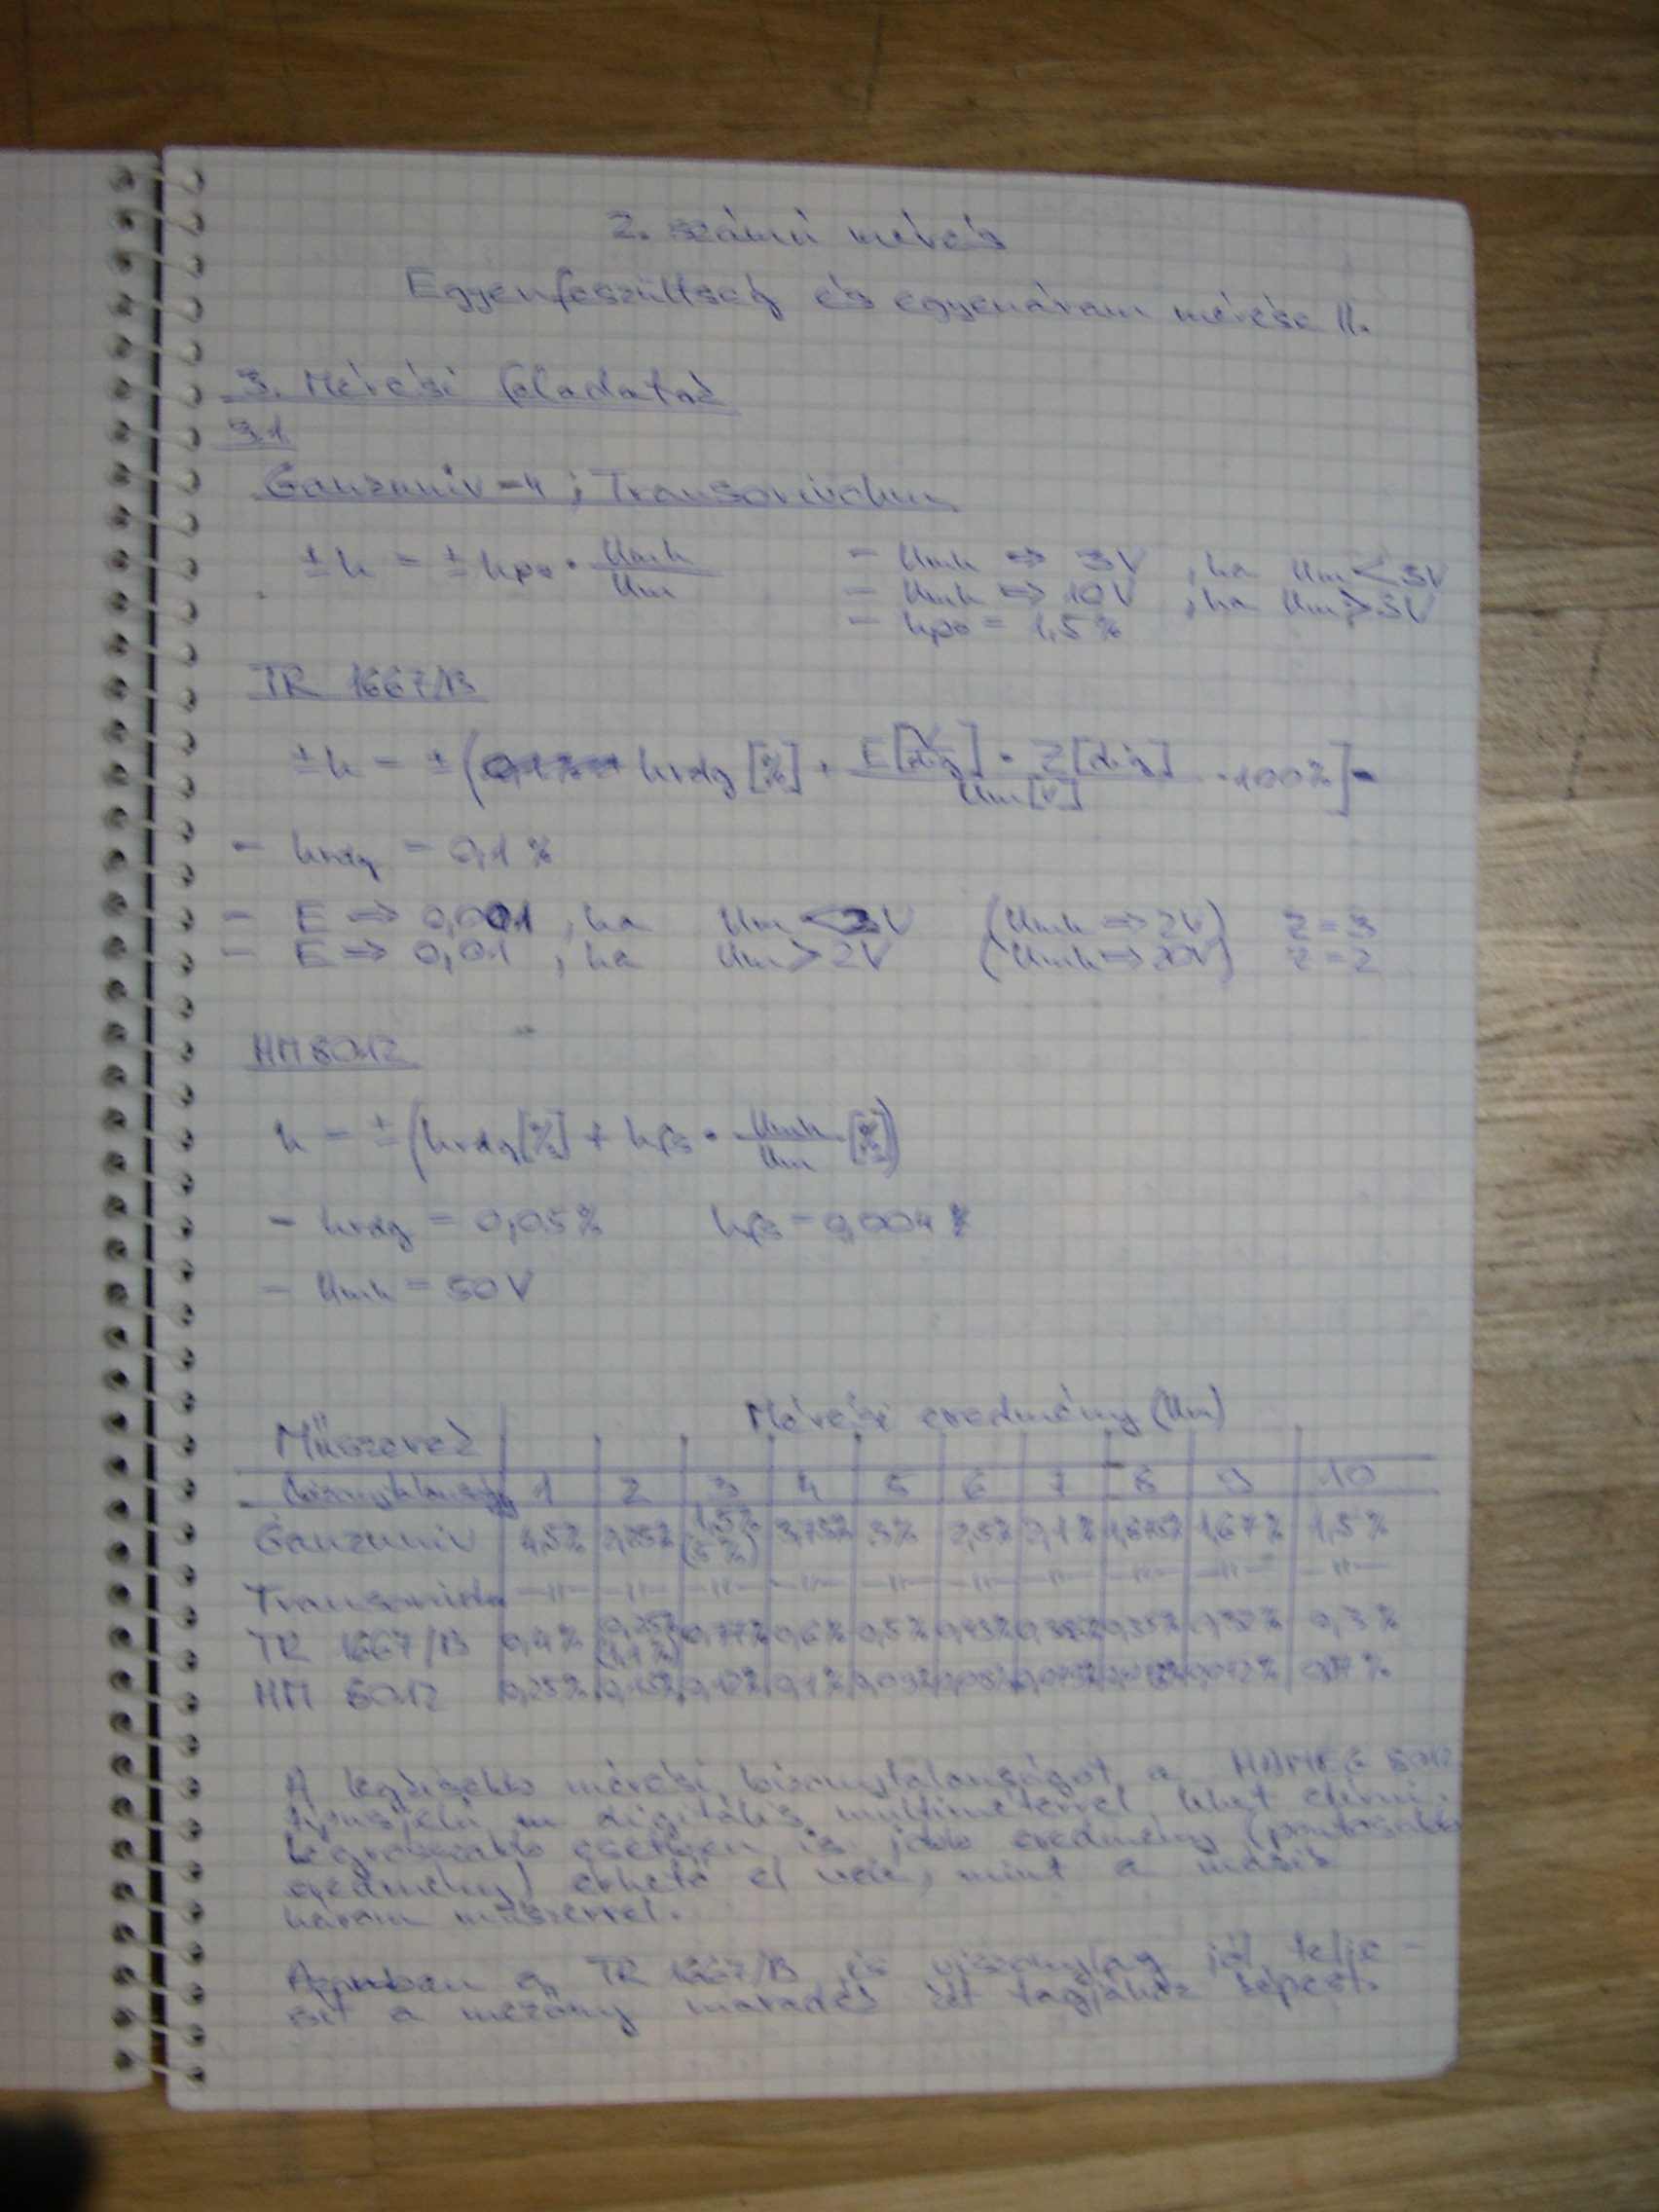 2. számú mérés
Egyenfeszültség és egyenáram mérése II.
3. Mérési feladatok
3.1
Ganzuniv-4 ;
± h = ± hpo · Umh / Um
- Umh ⇒ 3V , ha Um < 3V
- Umh ⇒ 10V , ha Um > 3V
- hpo = 1,5 %
TR 1667/B
± h = ± ( hrdg [%] + E[V/dig] · Z[dig] / Um[V] · 100% ]
- hrdg = 0,1 %
- E ⇒ 0,001 , ha Um < 2V (Umh ⇒ 2V) Z = 3
- E ⇒ 0,01 , ha Um > 2V (Umh ⇒ 20V) Z = 2
HM 8012
h = ± (hrdg[%] + hfs · Umh / Um [%])
- hrdg = 0,05 % hfs = 0,004 %
- Umh = 50 V
Műszerek Mérési eredmény (Um)
1 2 3 4 5 6 7 8 9 10
Ganzuniv 4,5% 2,25% 1,5% (5%) 3,75% 3% 2,5% 2,1% 1,875% 1,67% 1,5%
-"- -"- -"- -"- -"- -"- -"- -"- -"- -"-
TR 1667/B 0,4% 0,25% (1,1%) 0,77% 0,6% 0,5% 0,43% 0,35% 0,32% 0,3%
HM 8012 0,25% 0,15% 0,12% 0,1% 0,09% 0,072%
A legkisebb mérési bizonytalanságot a HAMEG 8012
digitális multiméterrel lehet elérni.
Legrosszabb esetben is jobb eredmény (pontosabb
eredmény) érhető el vele, mint a másik
három műszerrel.
Azonban a TR 1667/B is viszonylag jól telje-
sít a mezőny maradék két tagjához képest.